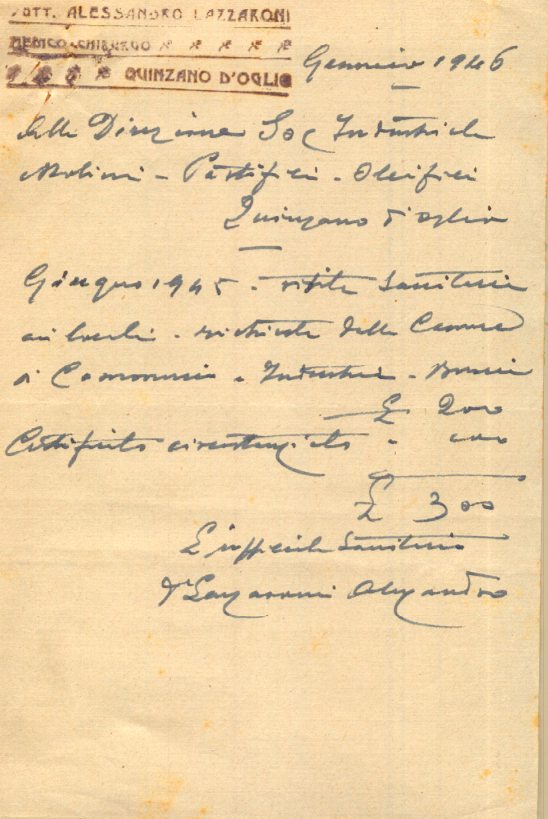 DOTT. ALESSANDRO LAZZARONI
MEDICO-CHIRURGO
QUINZANO D'OGLIO
Gennaio 1946
Alla Direzione Soc Industriale
Molini - Pastifici - Oleifici
Quinzano d'Oglio
Giugno 1945 - visita sanitaria
ai locali - richiesta della Camera
di Commercio - Industria - Brescia
£ 200
Certificato circostanziato - 100
£ 300
L'ufficiale Sanitario
Dr Lazzaroni Alessandro